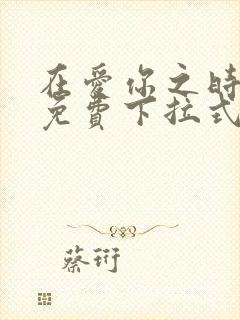 在愛你之時
免費下拉式
蔡衍